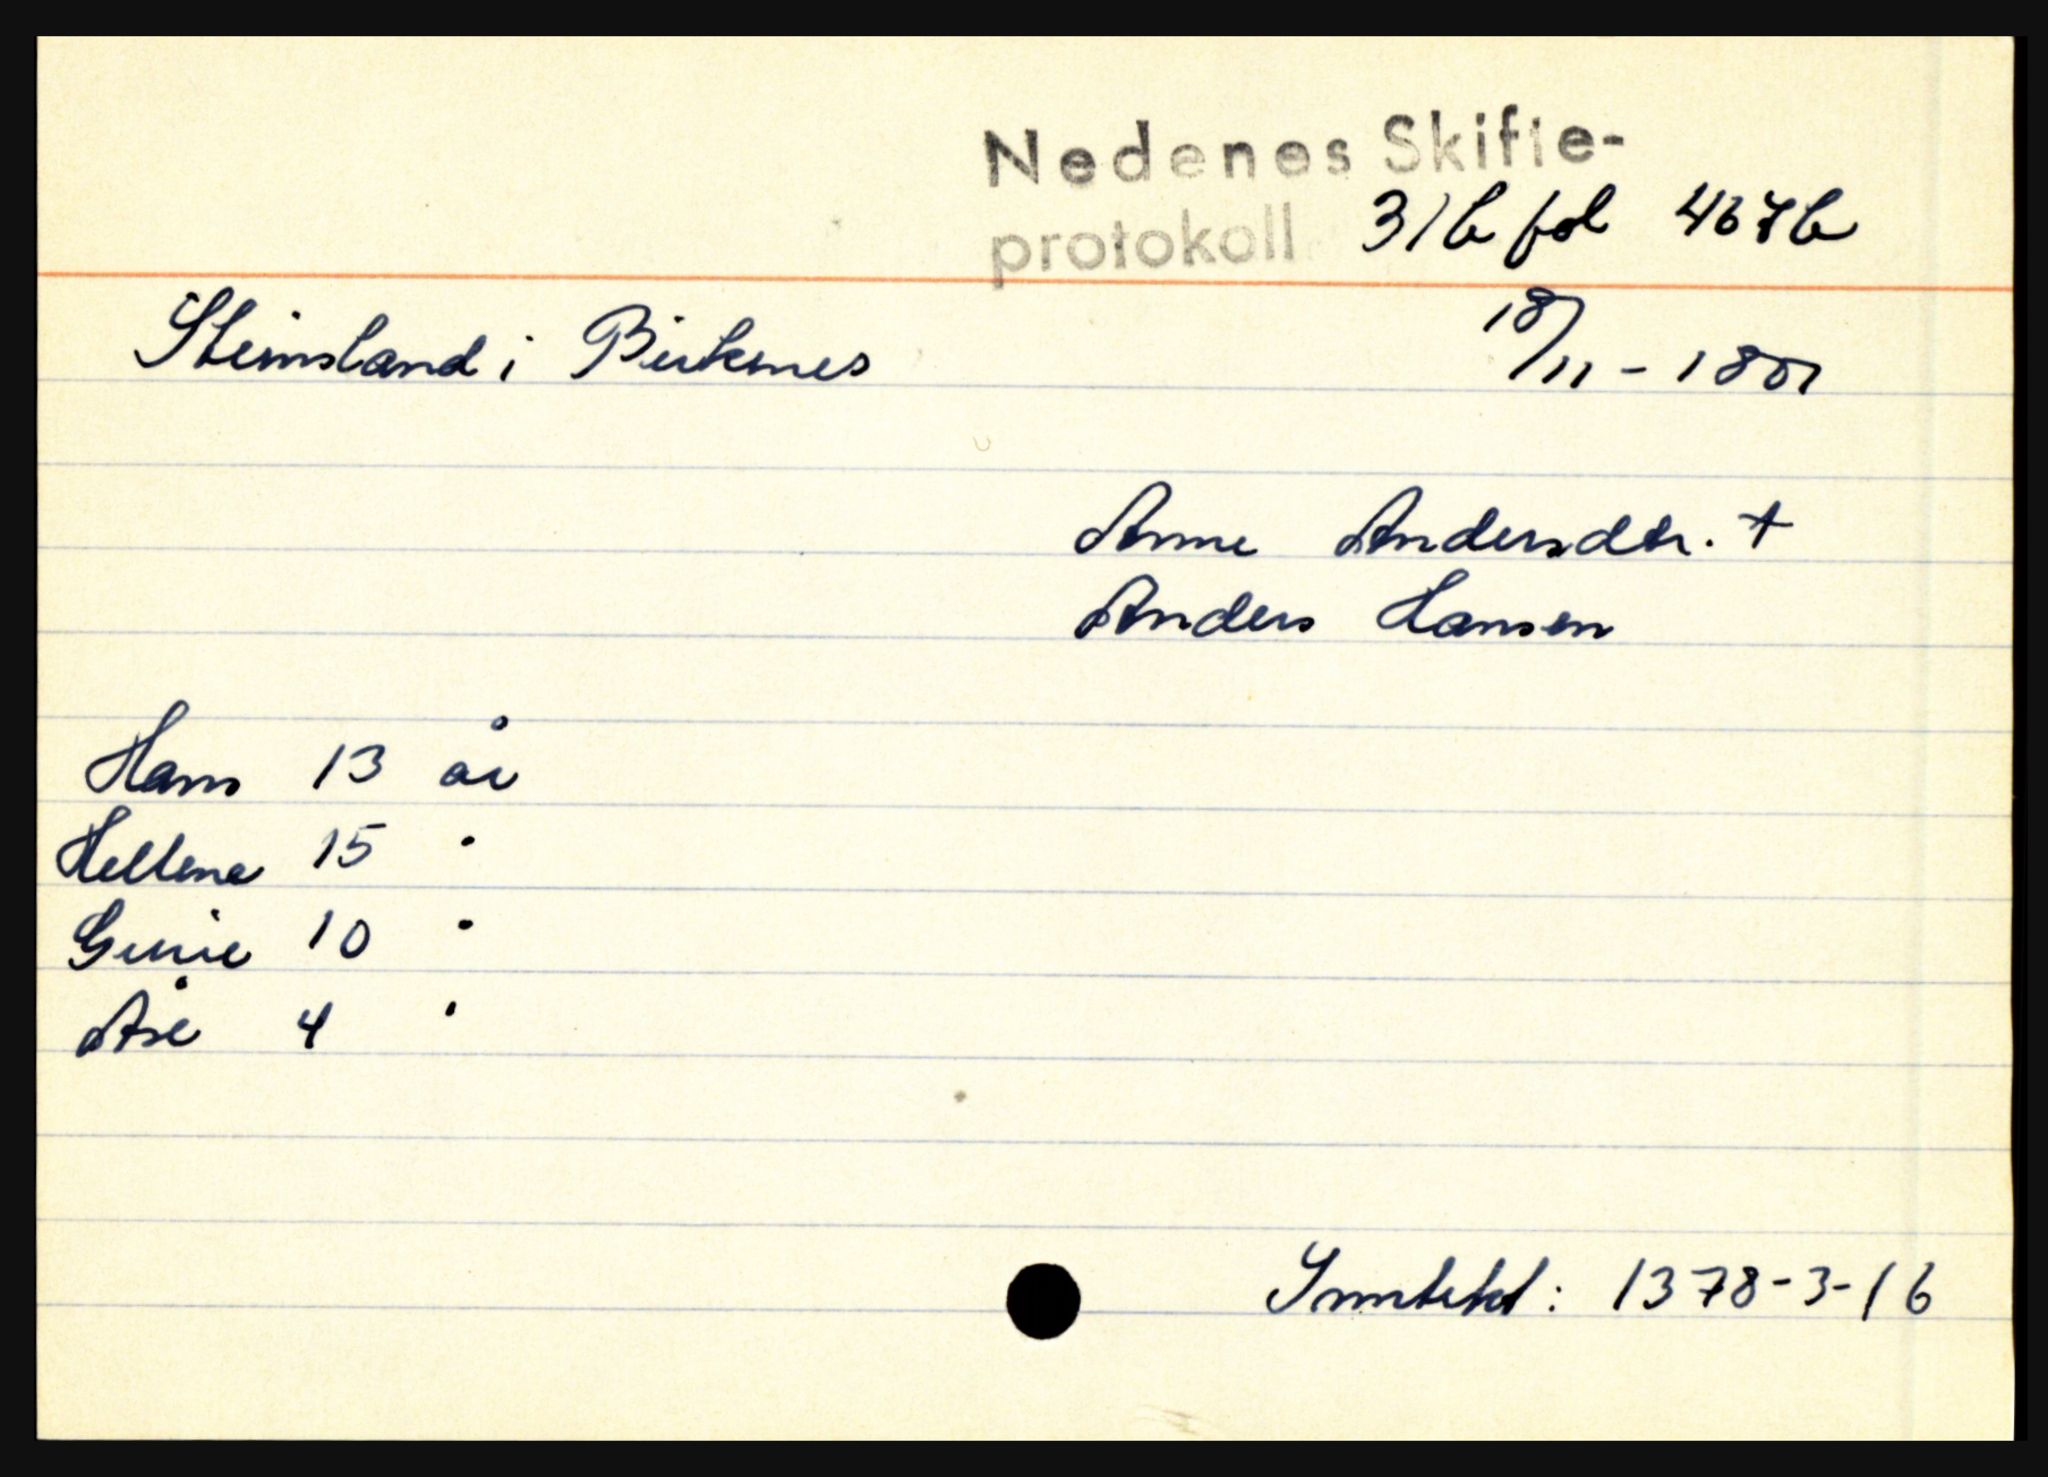 Nedenes Skifte-
protokoll 31b fol 467b
Steinsland i Birkenes 18/11 - 1801
Anne Andersdtr. +
Anders Hansen
Hans 13 år
Hellene 15 "
Gurie 10 "
Åse 4 "
Inntekt: 1378-3-16